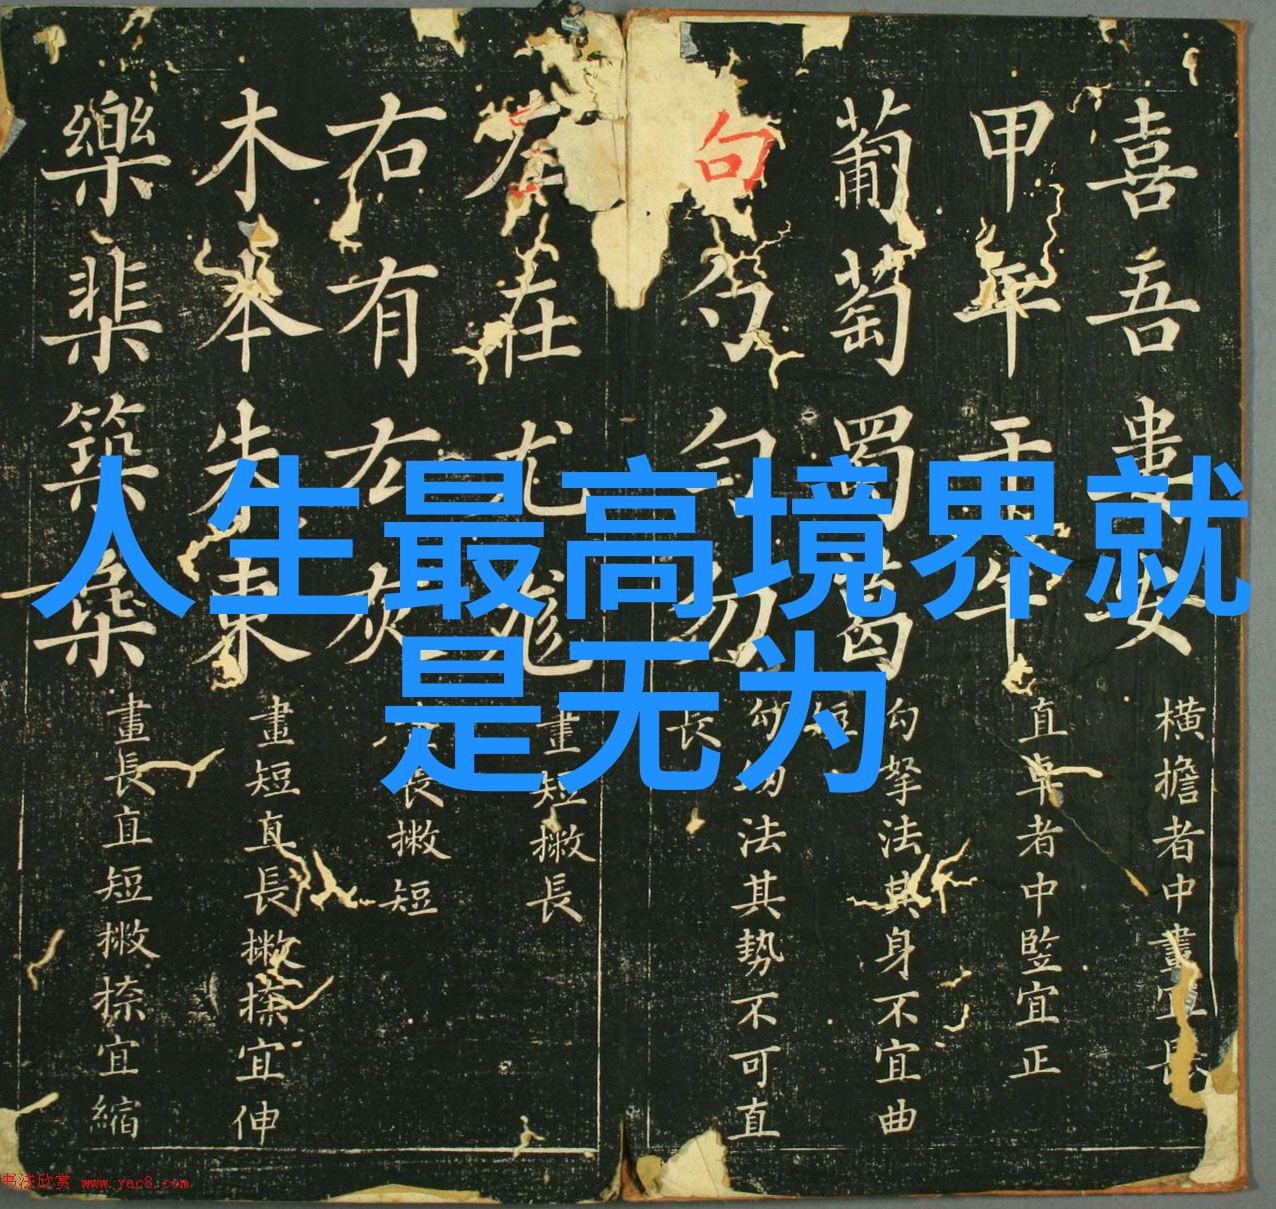 人生最高境界就
是无为
喜吾婁安
橫擔者中畫宜長
甲平干午
直卓者中竪宜正
葡萄蜀葛
勾拏法其身不宜曲
句勺勻勿
法其勢不可直
左在尤尨
畫短撇長
右有右灰
長撇短
木本朱東
畫短直長撇捺宜伸
樂棐築
畫長直短撇捺宜縮
书法欣赏 www.yac8.com